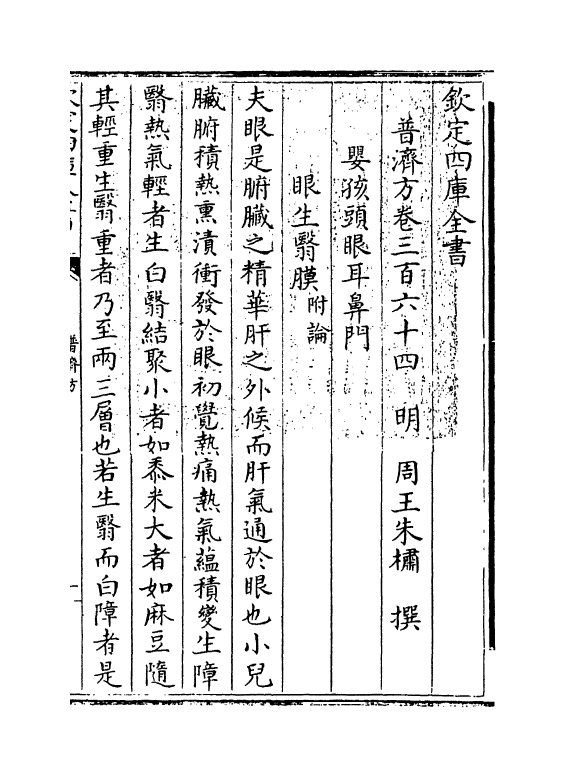 欽定四庫全書
普濟方卷三百六十四　明　周王朱橚　撰
嬰孩頭眼耳鼻門
眼生翳膜附論
夫眼是腑臟之精華肝之外候而肝氣通於眼也小兒
臟腑積熱熏漬衝發於眼初覺熱痛熱氣蘊積變生障
翳熱氣輕者生白翳結聚小者如黍米大者如麻豆隨
其輕重生翳重者乃至兩三層也若生翳而白障者是
普濟方
一